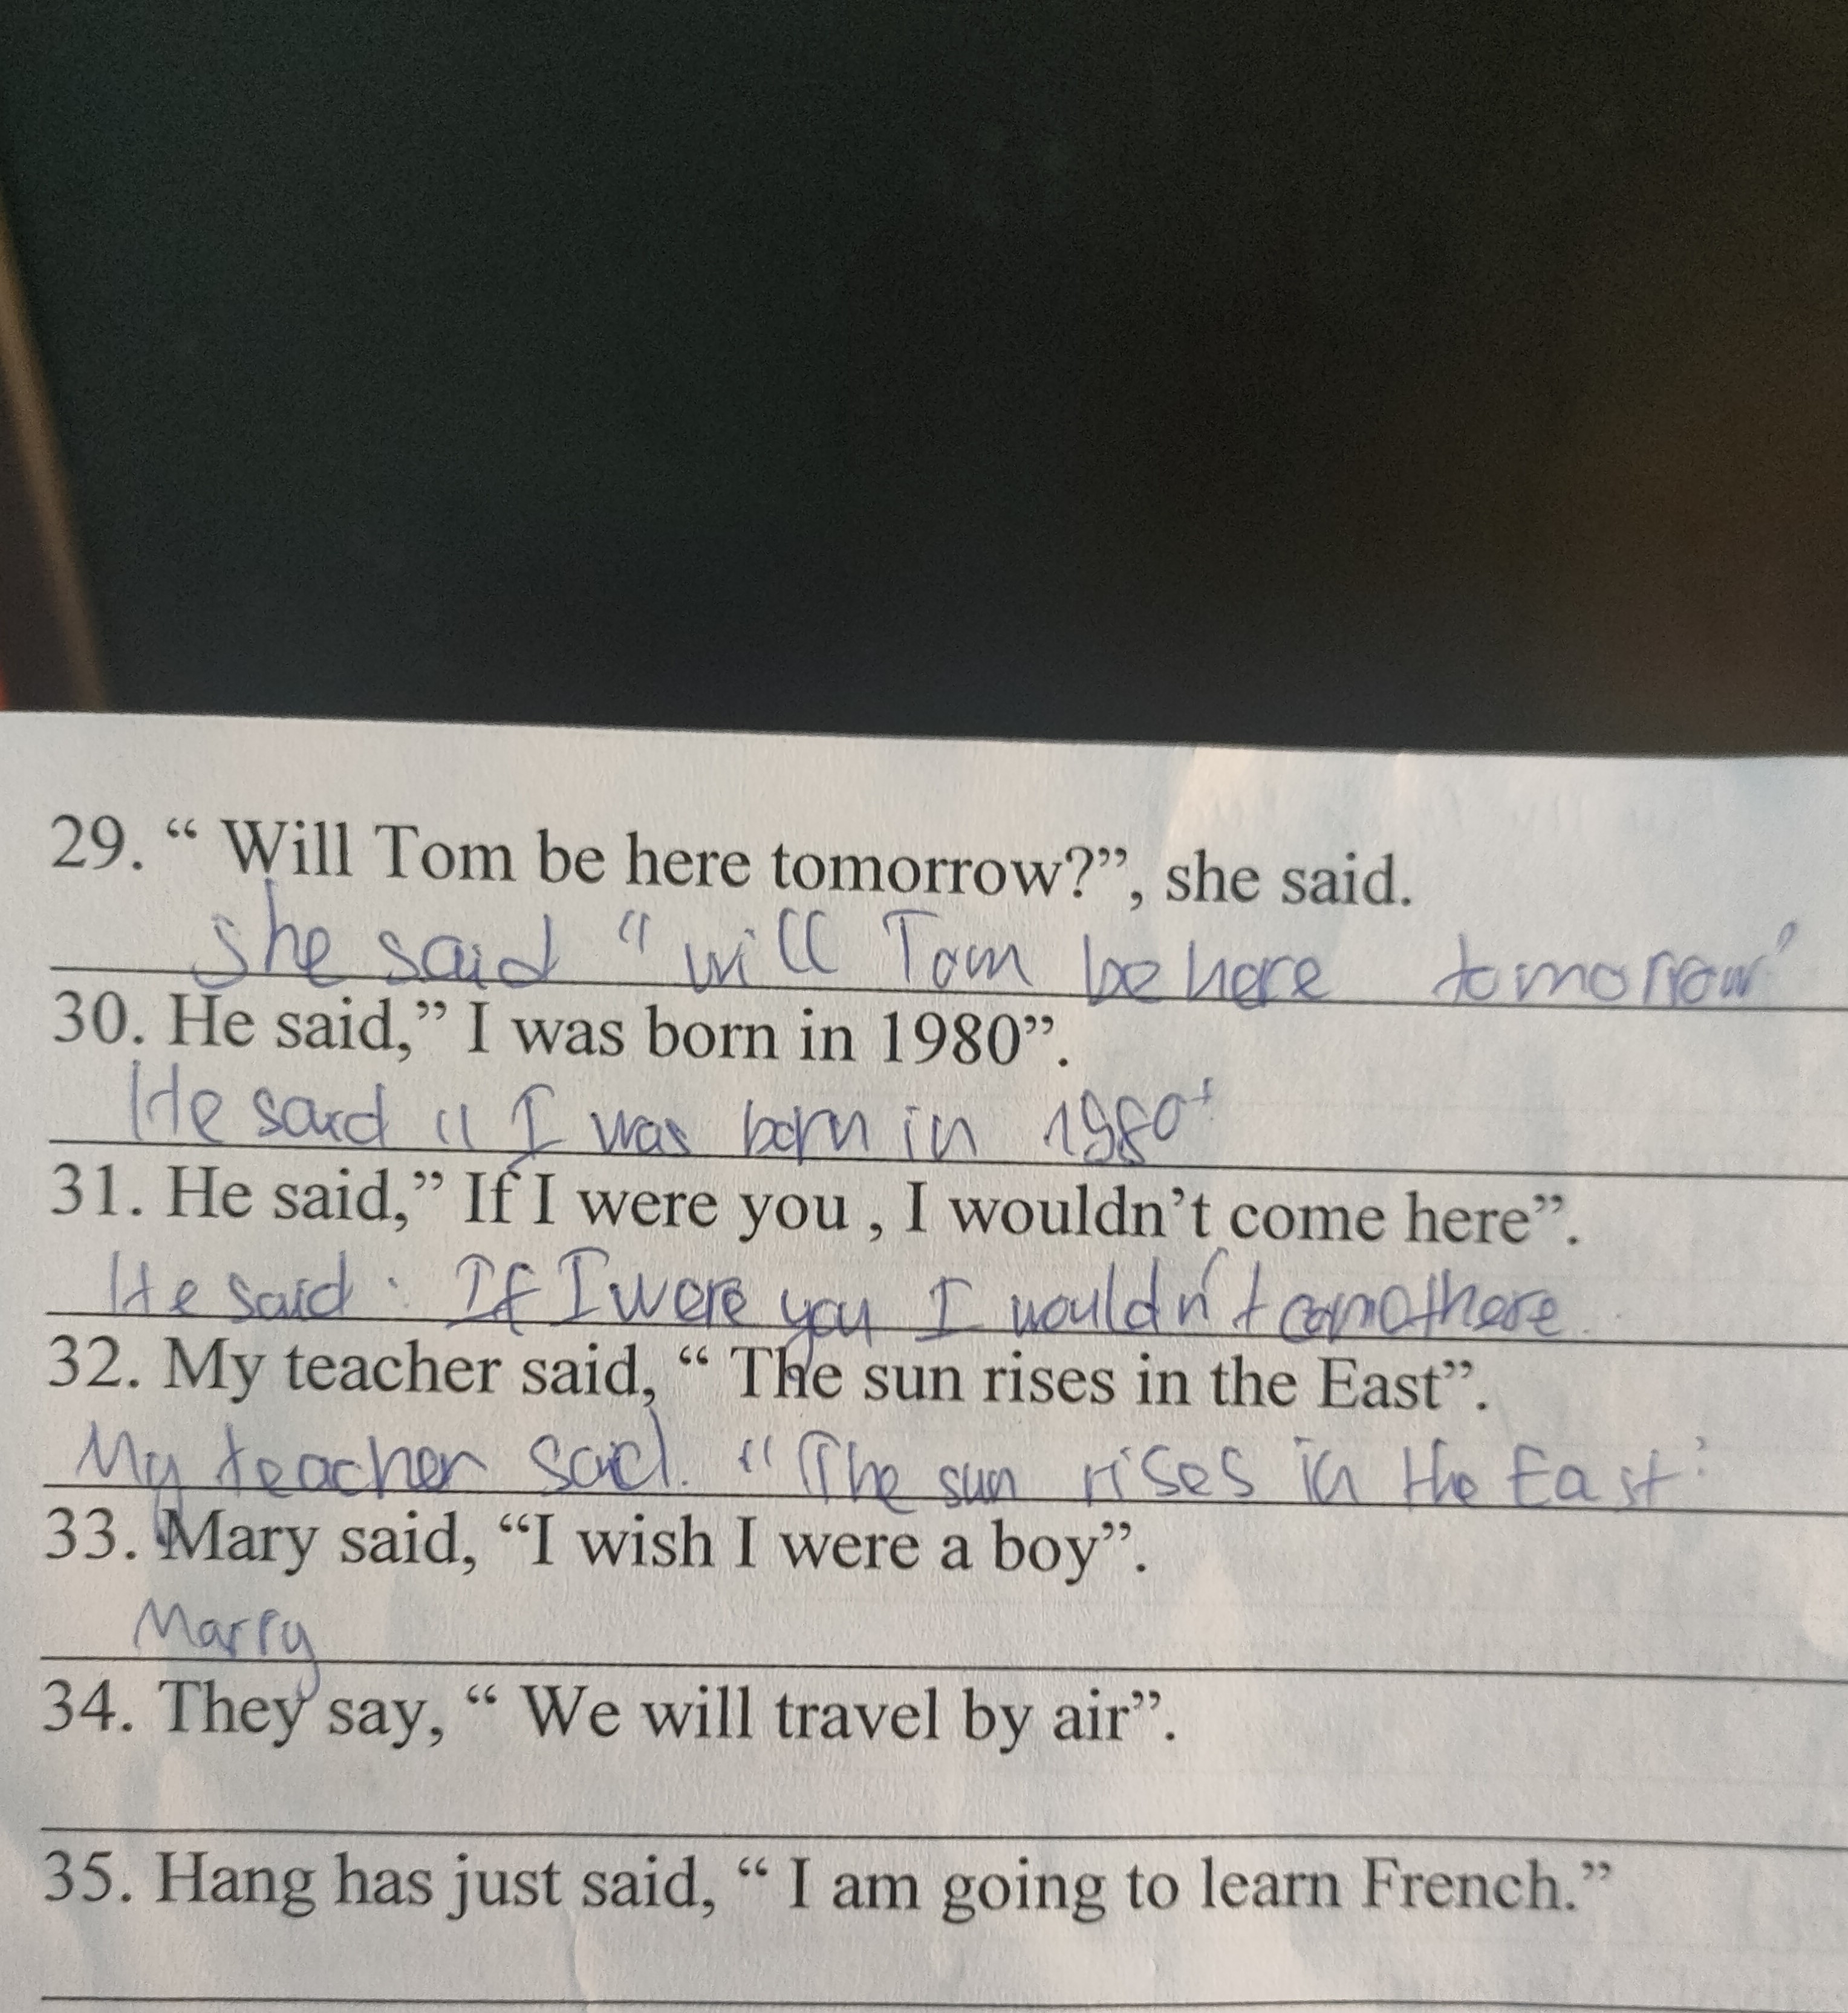 29. “ Will Tom be here tomorrow?”, she said.
She said " will Tom be here tomorrow"
30. He said,” I was born in 1980”.
He said " I was born in 1980"
31. He said,” If I were you , I wouldn’t come here”.
He said : If I were you I wouldn't come here
32. My teacher said, “ The sun rises in the East”.
My teacher said. "The sun rises in the East"
33. Mary said, “I wish I were a boy”.
Marry
34. They say, “ We will travel by air”.
35. Hang has just said, “ I am going to learn French.”